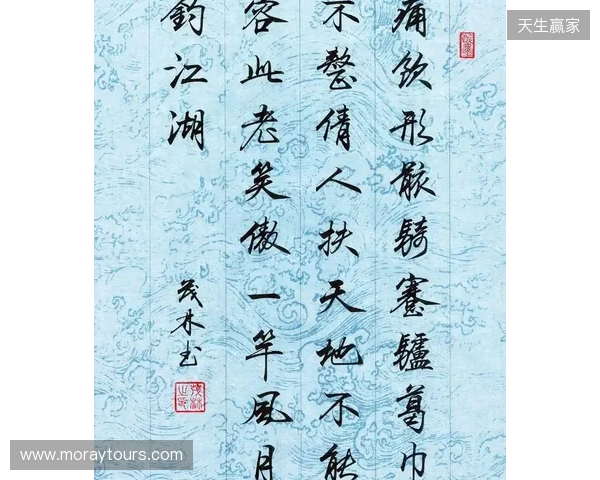 天生赢家
痛饮形骸骑蹇驴葛巾
不整倩人扶天地不能
容此老笑傲一竿风月
钓江湖
茂林书
www.moraytours.com